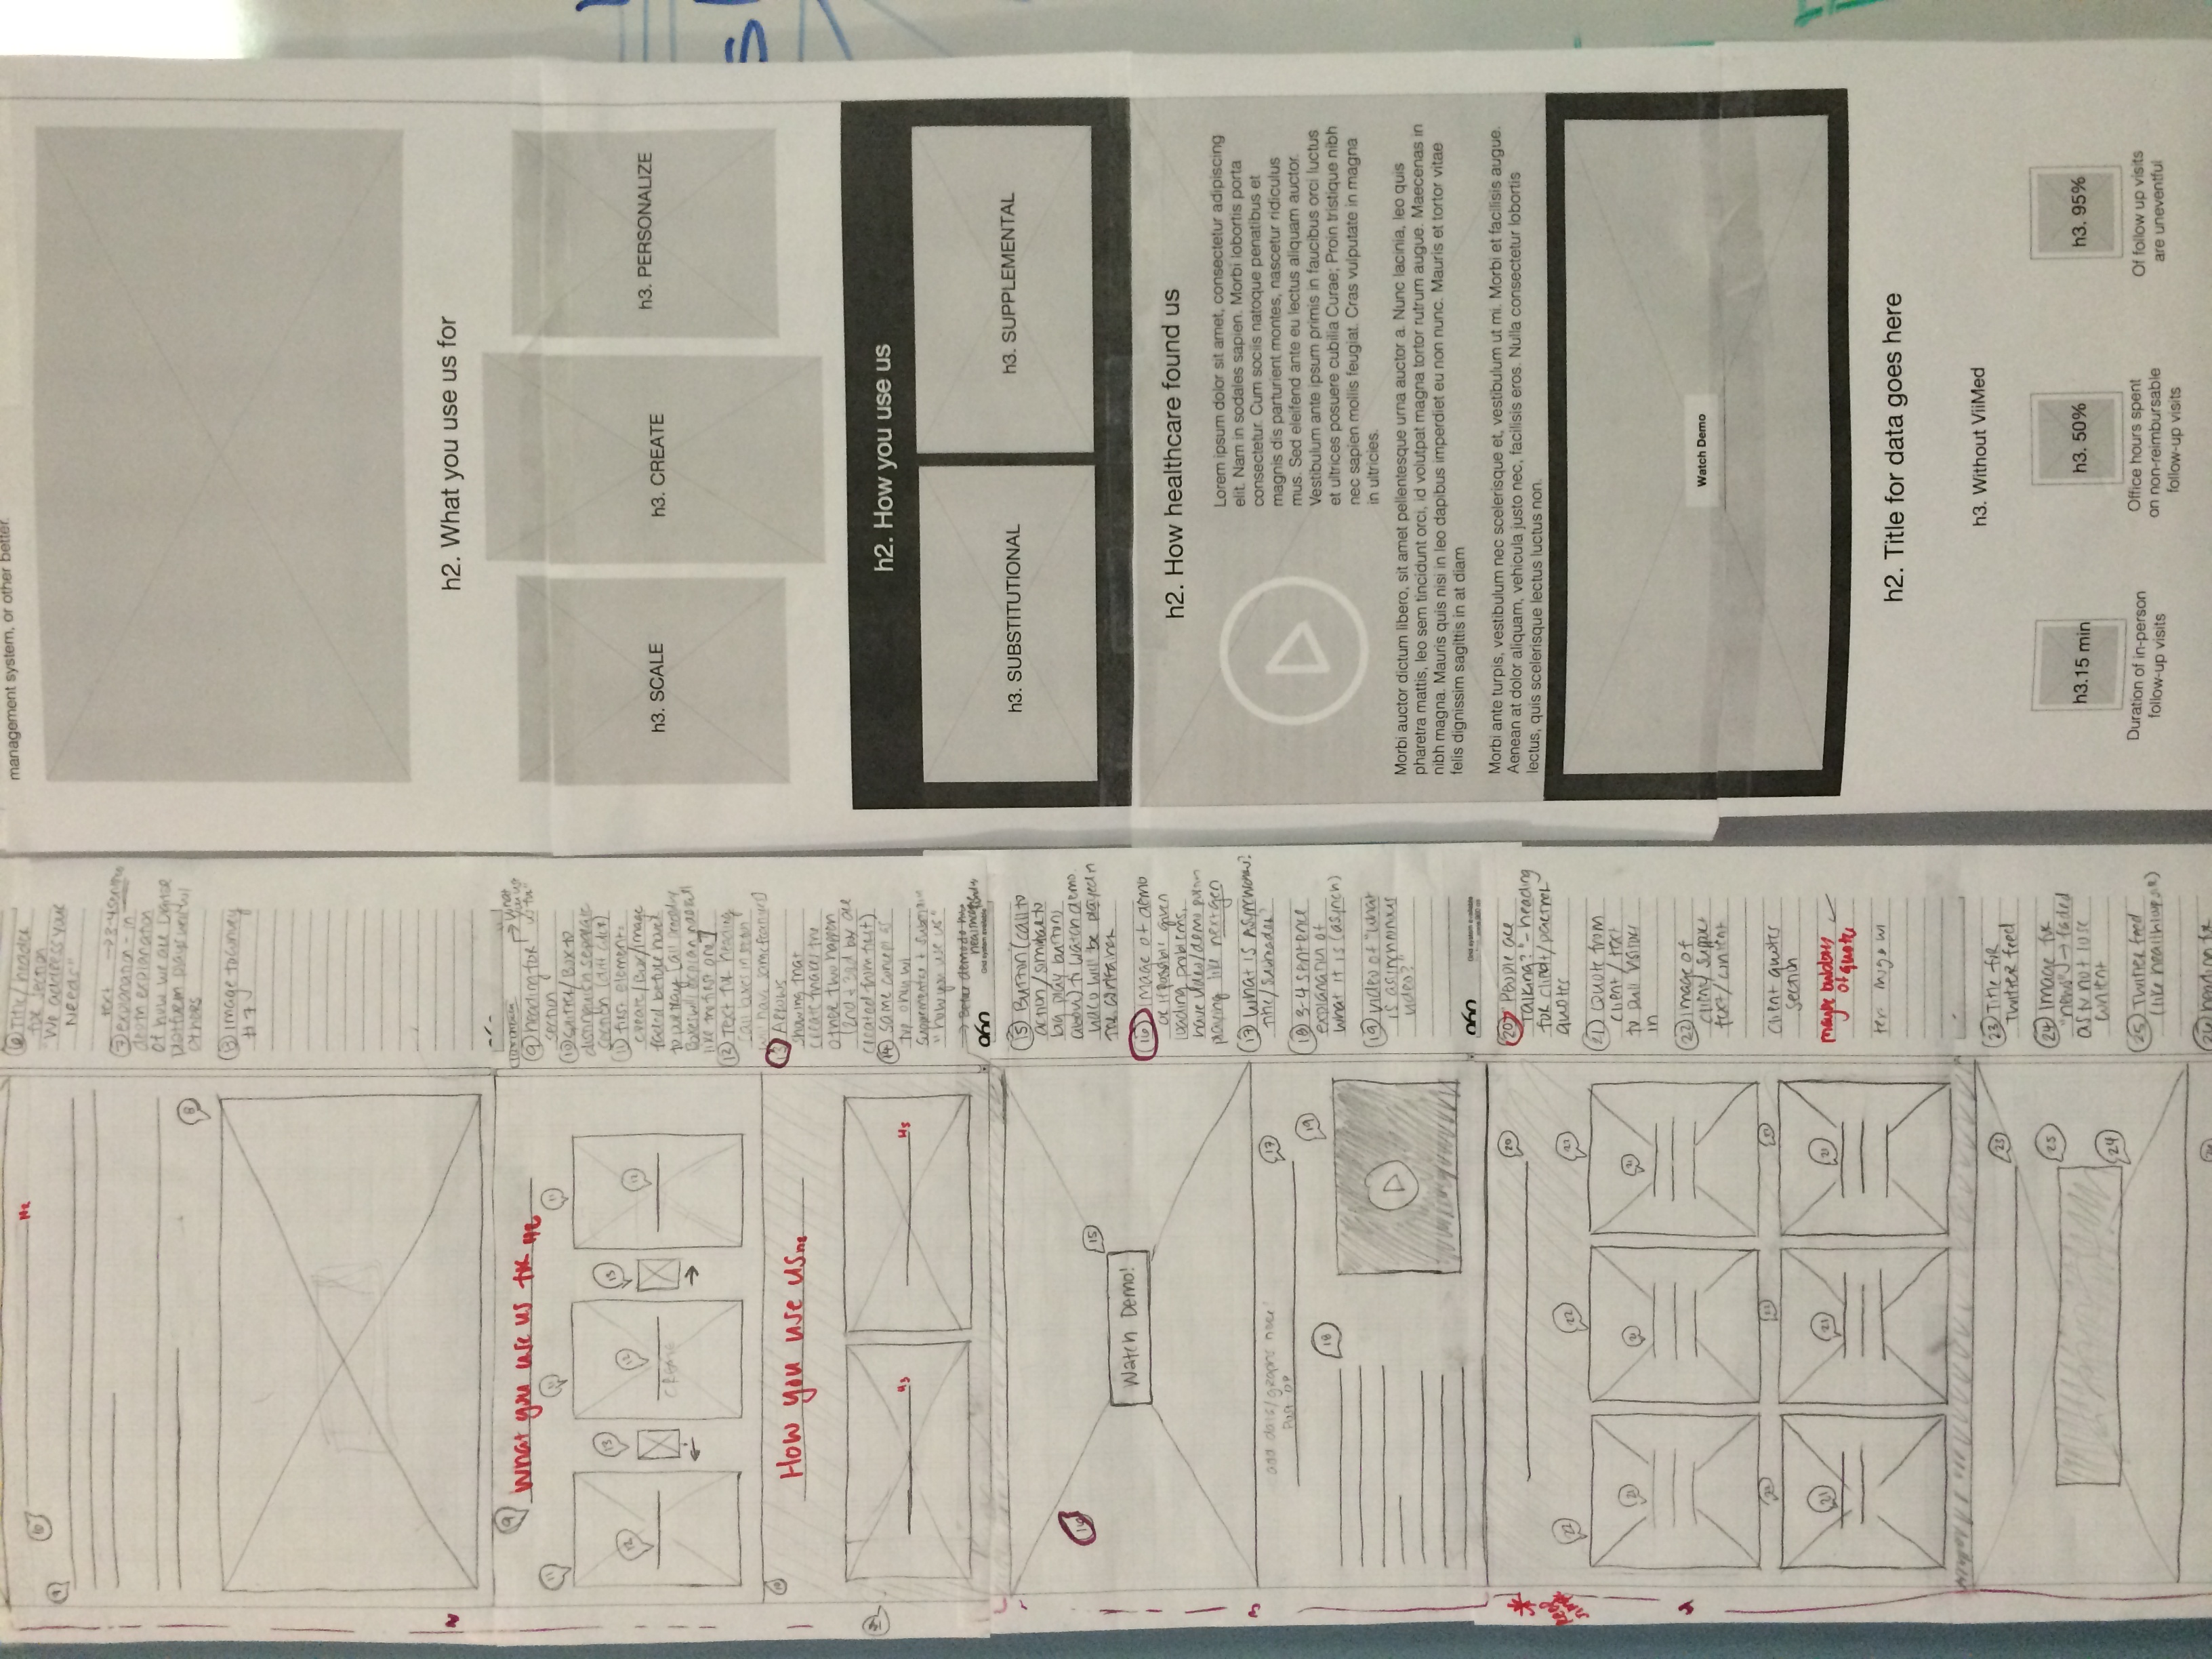 H2
6
7
8
2
9 What you use us for H2
11
11
11
12
13
12
13
12
CREATE
10
How you use us H2
14
H3
H3
16
15
Watch Demo!
3
add data/graphs here!
17
18
19
20
* keep simple
22
22
22
21
21
21
4
22
22
22
21
21
21
23
25
24
6 Title/header
for section
"We address your
Needs"
text → 3-4 sentences
7 explanation - in
depth explanation
of how we are
platform plays well w/
others
8 Image to convey
#7
→ "What you use us for"
9 heading for
section
10 Gutter/Box to
distinguish separate
section (diff color)
11 first element =
create/Box/image
faded before hover
Boxes will explain
like the first one]
12 Text for heading
[all boxes in
will have same features]
13 Arrows
showing that
create makes the
other two happen
(2nd + 3rd box are
created from first)
14 same concept as
top only w/
"how you use us"
healthcare
960 Grid system available
15 Button (call to
action/similar to
big play button
above) to watch demo.
video will be played in
the container
16 Image of demo
or if possible given
loading problems,
have video/demo
playing like nextgen
17 What is Asynchronous?
title/subheader
18 3-4 sentence
explanation of
what it is (asynch)
19 video of "what
is asynchronous
video?"
960 Grid system available
20 "People are
Talking?" - heading
for client/partner
quotes
21 Quote from
client/text
to pull visitors
in
22 image of
client/support
text/content
client quotes
section
maybe
of quote
23 Title for
Twitter feed
24 Image for
"news" → faded
as to not lose
content
25 Twitter feed
26 heading for
management system, or other better.
h2. What you use us for
h3. SCALE
h3. CREATE
h3. PERSONALIZE
h2. How you use us
h3. SUBSTITUTIONAL
h3. SUPPLEMENTAL
h2. How healthcare found us
Lorem ipsum dolor sit amet, consectetur adipiscing
elit. Nam in sodales sapien. Morbi lobortis porta
consectetur. Cum sociis natoque penatibus et
magnis dis parturient montes, nascetur ridiculus
mus. Sed eleifend ante eu lectus aliquam auctor.
Vestibulum ante ipsum primis in faucibus orci luctus
et ultrices posuere cubilia Curae; Proin tristique nibh
nec sapien mollis feugiat. Cras vulputate in magna
in ultricies.
Morbi auctor dictum libero, sit amet pellentesque urna auctor a. Nunc lacinia, leo quis
pharetra mattis, leo sem tincidunt orci, id volutpat magna tortor rutrum augue. Maecenas in
nibh magna. Mauris quis nisi in leo dapibus imperdiet eu non nunc. Mauris et tortor vitae
felis dignissim sagittis in at diam
Morbi ante turpis, vestibulum nec scelerisque et, vestibulum ut mi. Morbi et facilisis augue.
Aenean at dolor aliquam, vehicula justo nec, facilisis eros. Nulla consectetur lobortis
lectus, quis scelerisque lectus luctus non.
Watch Demo
h2. Title for data goes here
h3. Without ViiMed
h3.15 min
h3. 50%
h3. 95%
Duration of in-person
follow-up visits
Office hours spent
on non-reimbursable
follow-up visits
Of follow up visits
are uneventful